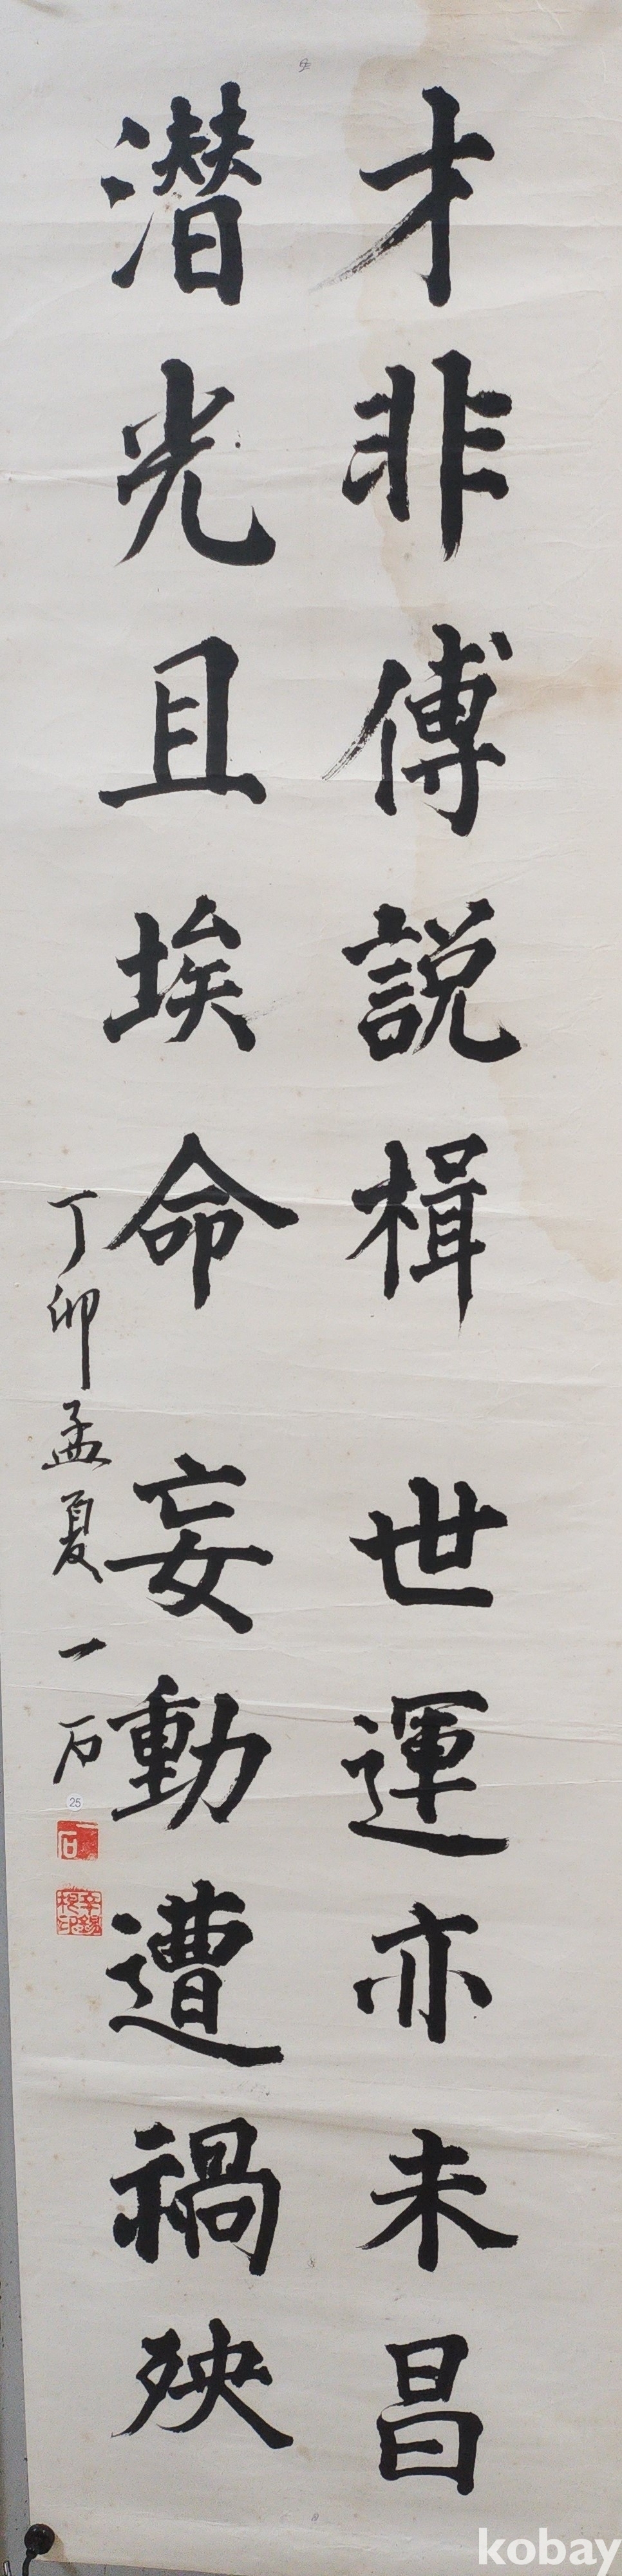 才非傅說楫 世運亦未昌
潛光且埃命 妄動遭禍殃
丁卯孟夏 一石
25
一石
kobay